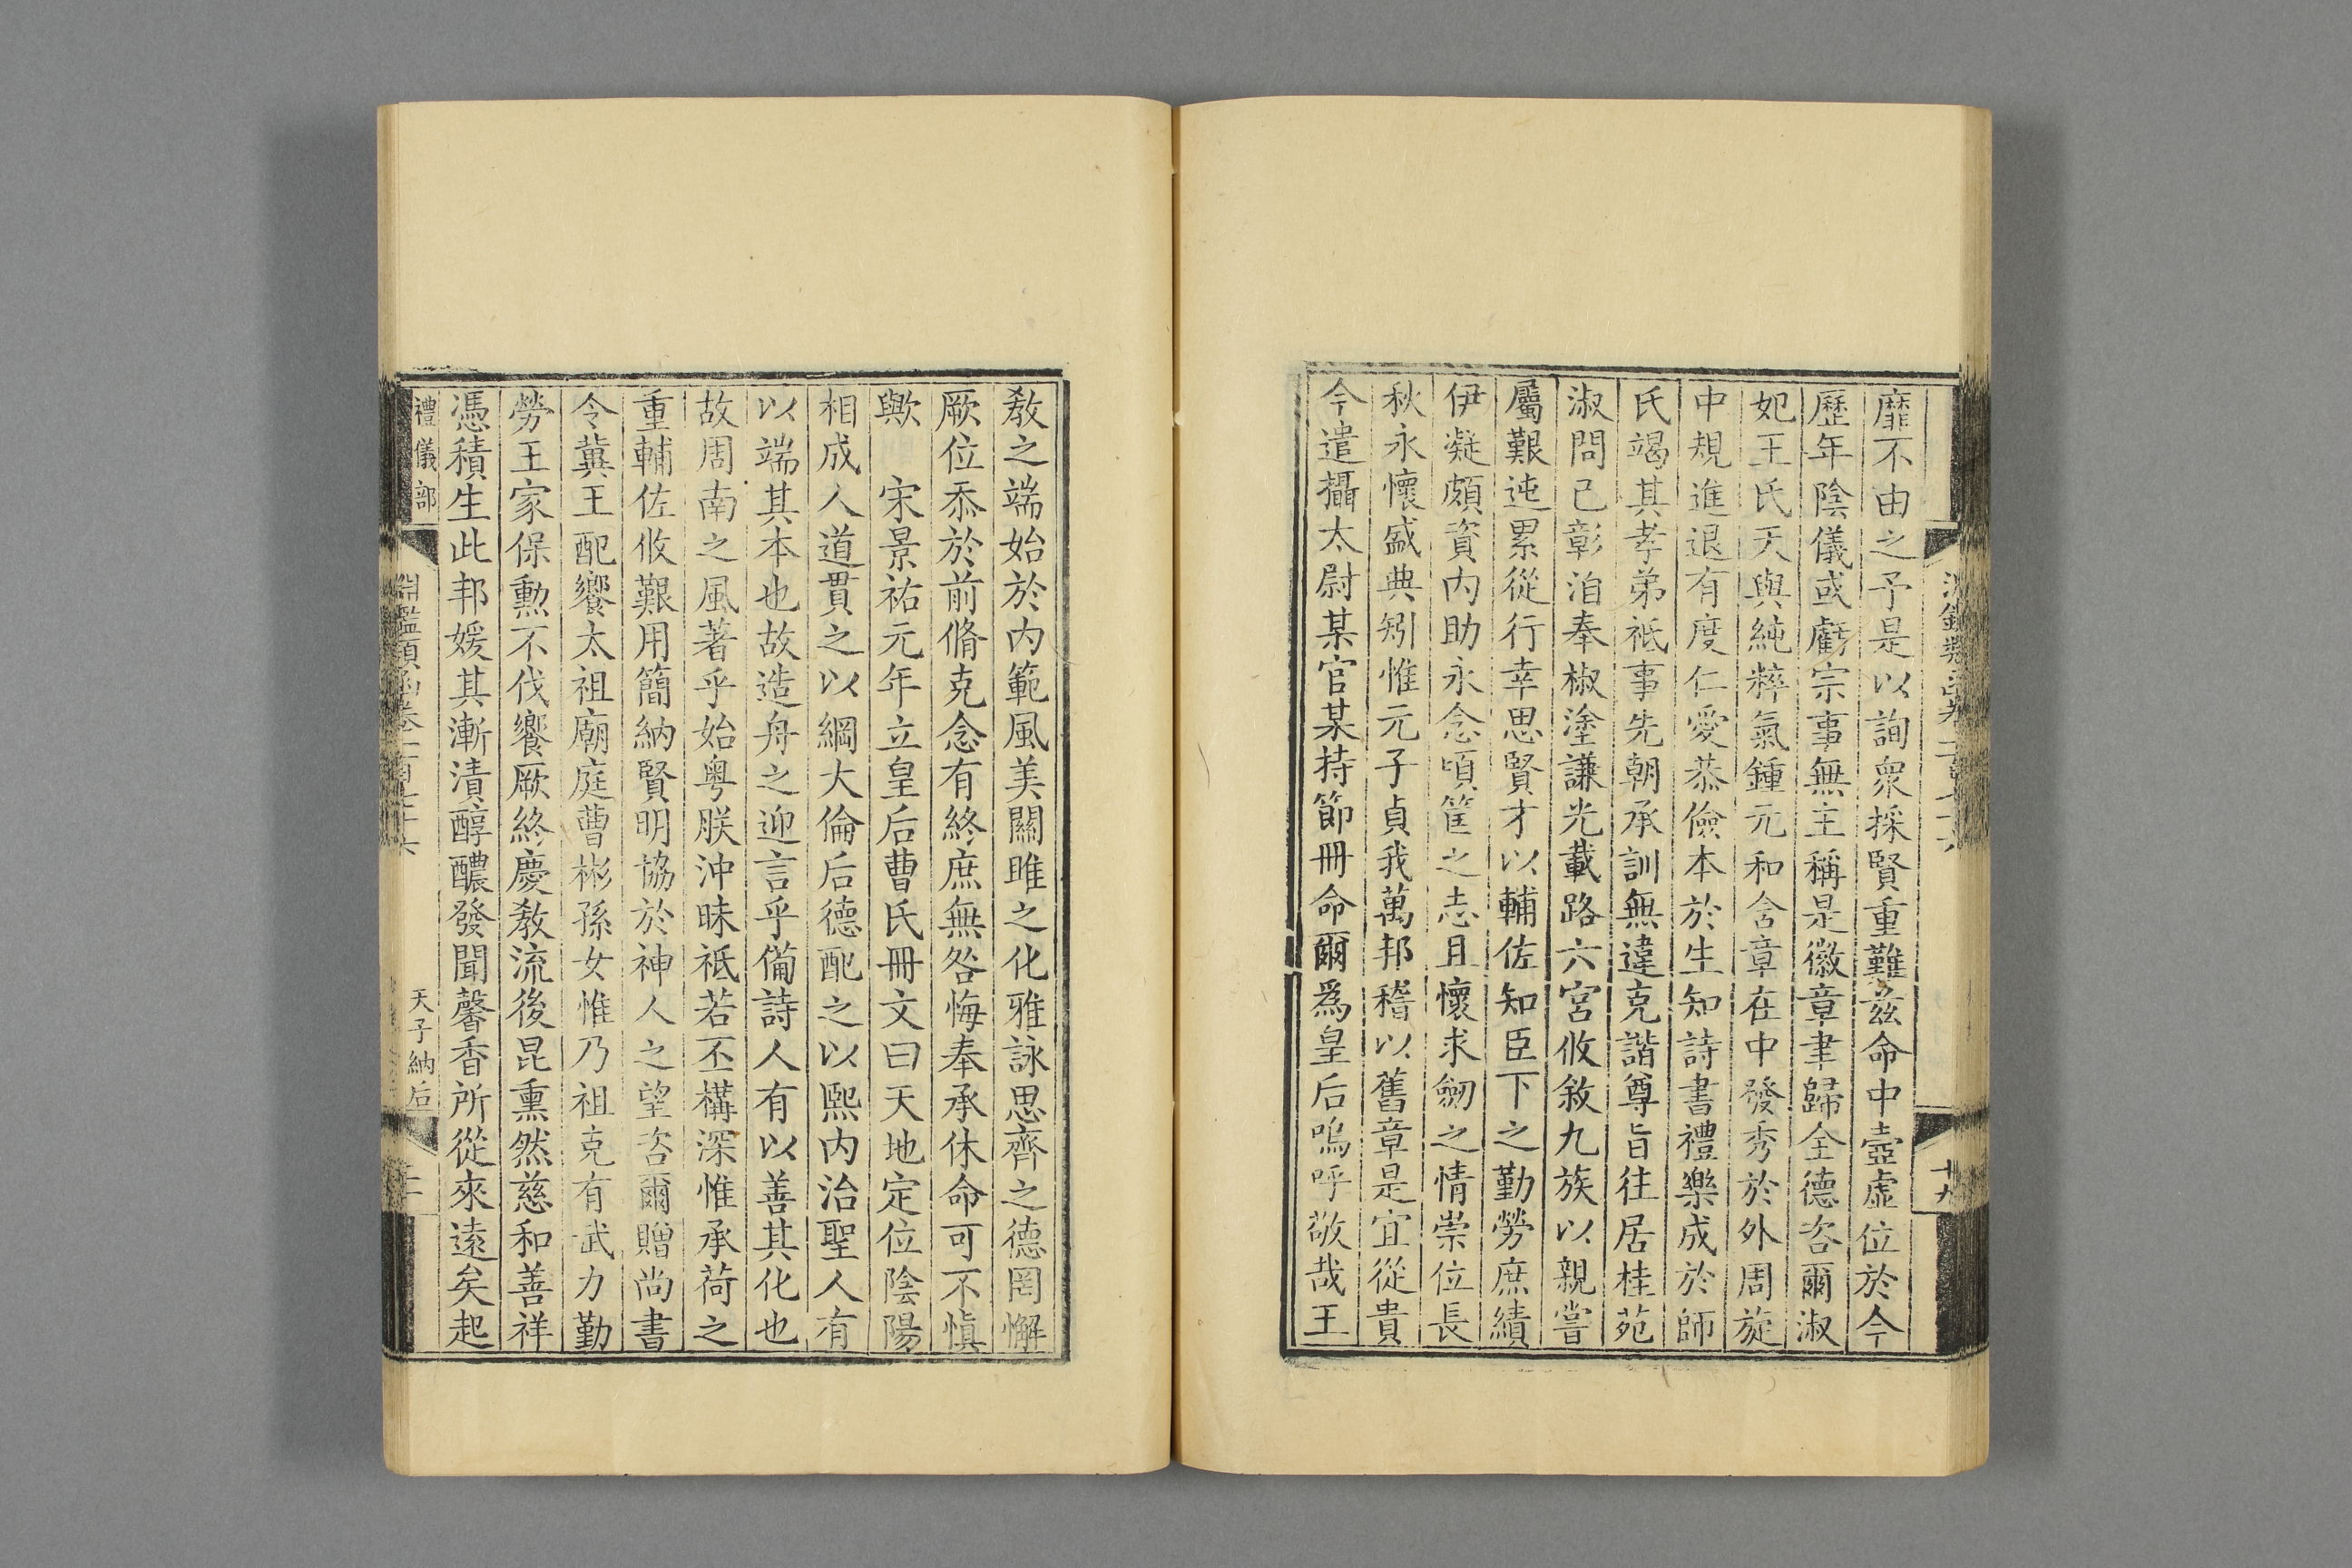 靡不由之予是以詢衆採賢重難兹命中壼虛位於今
歷年陰儀或虧宗事無主稱是徽章聿歸全德咨爾淑
妃王氏天與純粹氣鍾元和含章在中發秀於外周旋
中規進退有度仁愛恭儉本於生知詩書禮樂成於師
氏竭其孝弟祗事先朝承訓無違克諧尊旨往居桂苑
淑問已彰洎奉椒塗謙光載路六宮攸敘九族以親嘗
屬艱迍累從行幸思賢才以輔佐知臣下之勤勞庶績
伊凝頗資内助永念頃筐之志且懷求劒之情崇位長
秋永懷盛典矧惟元子貞我萬邦稽以舊章是宜從貴
今遣攝太尉某官某持節冊命爾爲皇后嗚呼敬哉王
十九
教之端始於内範風美關雎之化雅詠思齊之德罔懈
厥位忝於前脩克念有終庶無咎悔奉承休命可不愼
歟　宋景祐元年立皇后曹氏冊文曰天地定位陰陽
相成人道貫之以綱大倫后德配之以熙内治聖人有
以端其本也故造舟之迎言乎備詩人有以善其化也
故周南之風著乎始粤朕沖昧祗若丕構深惟承荷之
重輔佐攸艱用簡納賢明協於神人之望咨爾贈尚書
令冀王配饗太祖廟庭曹彬孫女惟乃祖克有武力勤
勞王家保勳不伐饗厥終慶教流後昆熏然慈和善祥
憑積生此邦媛其漸漬醇醲發聞馨香所從來遠矣起
禮儀部
淵鑑類函卷一百七十六
天子納后